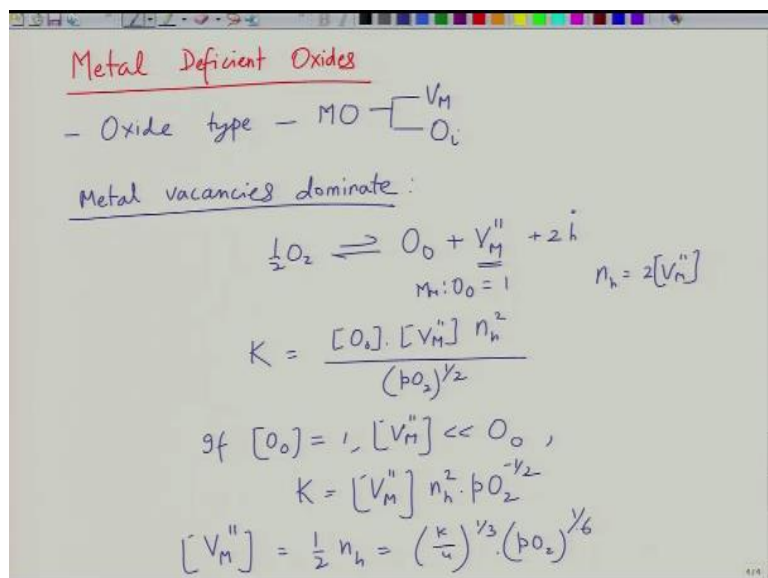 Metal Deficient Oxides
- Oxide type - MO V_M
O_i
Metal vacancies dominate :
½O₂ ⇌ O_O + V_M'' + 2ḣ
M_M : O_O = 1
n_h = 2[V_M'']
K = [O_O] . [V_M''] n_h² / (pO₂)^½
If [O_O] = 1, [V_M''] << O_O ,
K = [V_M''] n_h² . pO₂^-½
[V_M''] = ½ n_h = (K/4)^⅓ . (pO₂)^⅙
4/4